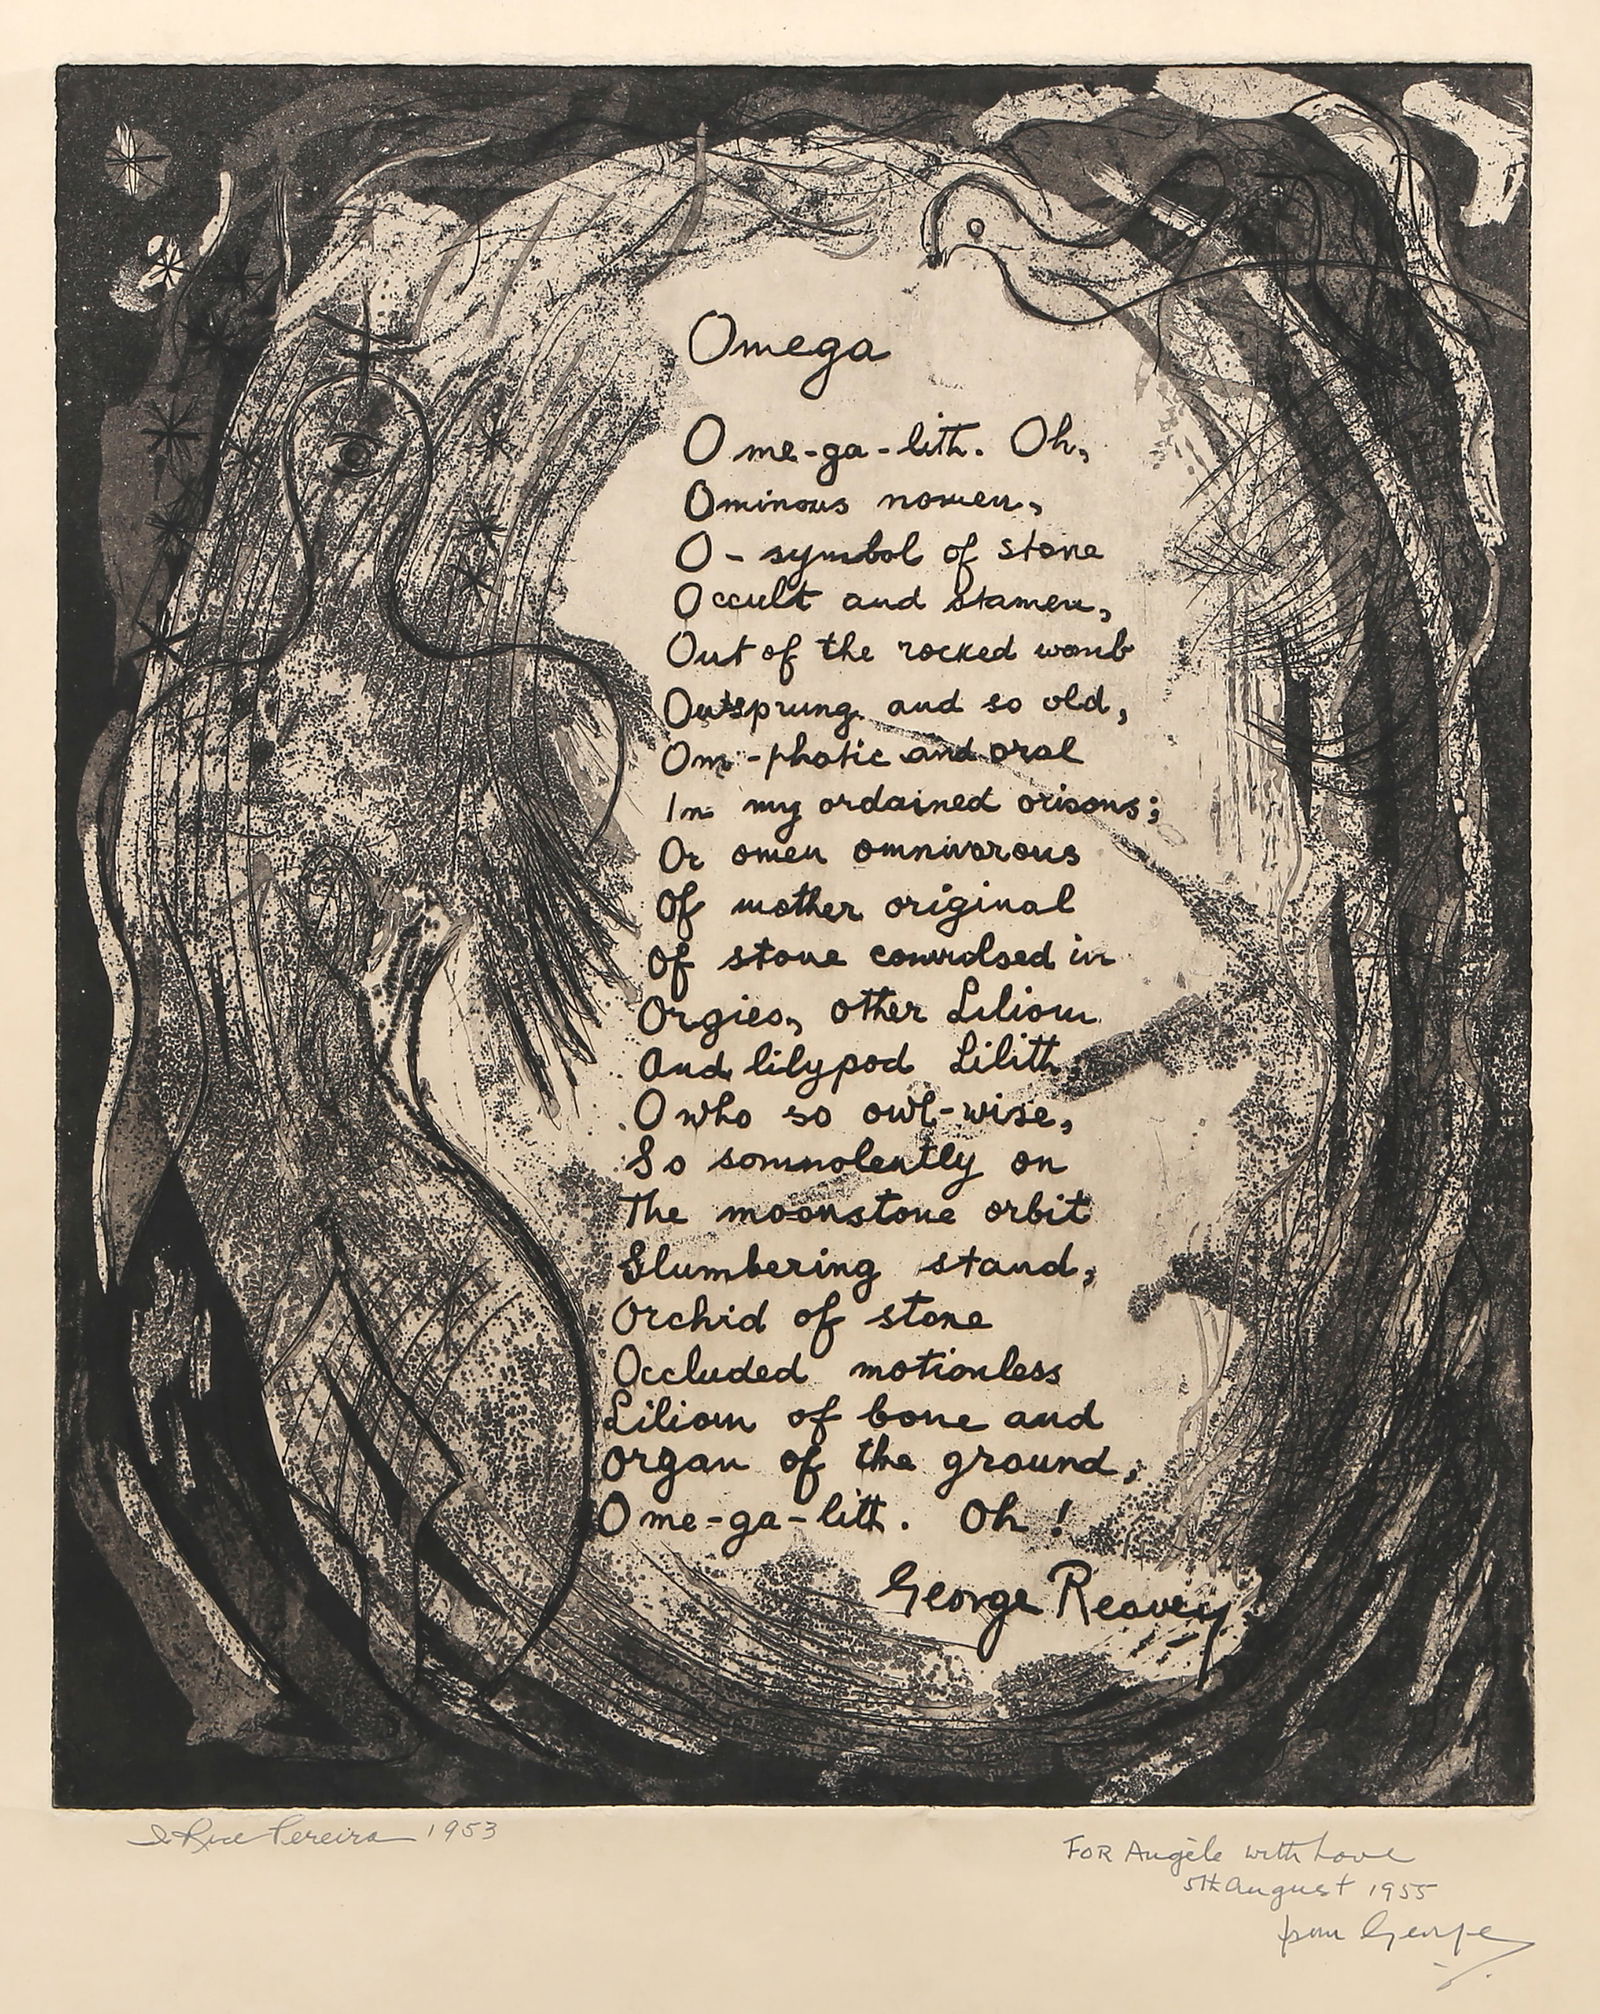 Omega
O me-ga-lith. Oh,
Ominous nomen,
O - symbol of stone
Occult and stamen,
Out of the rocked womb
Outsprung and so old,
Om-phatic and oral
In my ordained orisons;
Or omen omnivorous
Of mother original
Of stone convulsed in
Orgies, other Liliom
And lilypod Lilith,
O who so owl-wise,
So somnolently on
The moonstone orbit
Slumbering stand,
Orchid of stone
Occluded motionless
Liliom of bone and
Organ of the ground,
O me-ga-lith. Oh!
George Reavey
I. Rice Pereira 1953
FOR Angèle with Love
5th August 1955
from George